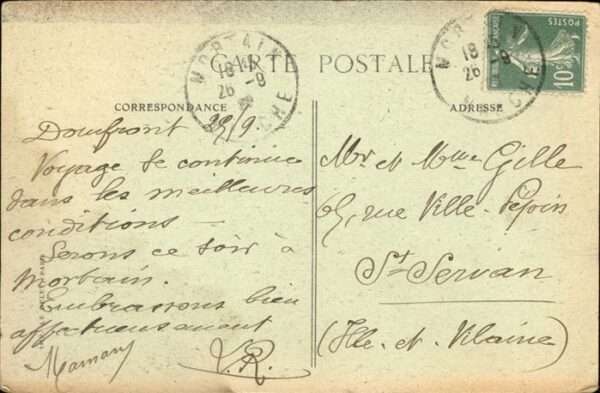 CARTE POSTALE
CORRESPONDANCE
ADRESSE
MORTAIN
18
26 -9
MANCHE
MORTAIN
18
26 -9
CHE
POSTES
10c
Domfront /9
Voyage se continue
dans les meilleures
conditions -
Serons ce soir à
Mortain.
Embrassons bien
affectueusement
Maman
V.R.
Mr et Mme Gille
65, rue Ville-Pépin
St Servan
(Ille-et-Vilaine)